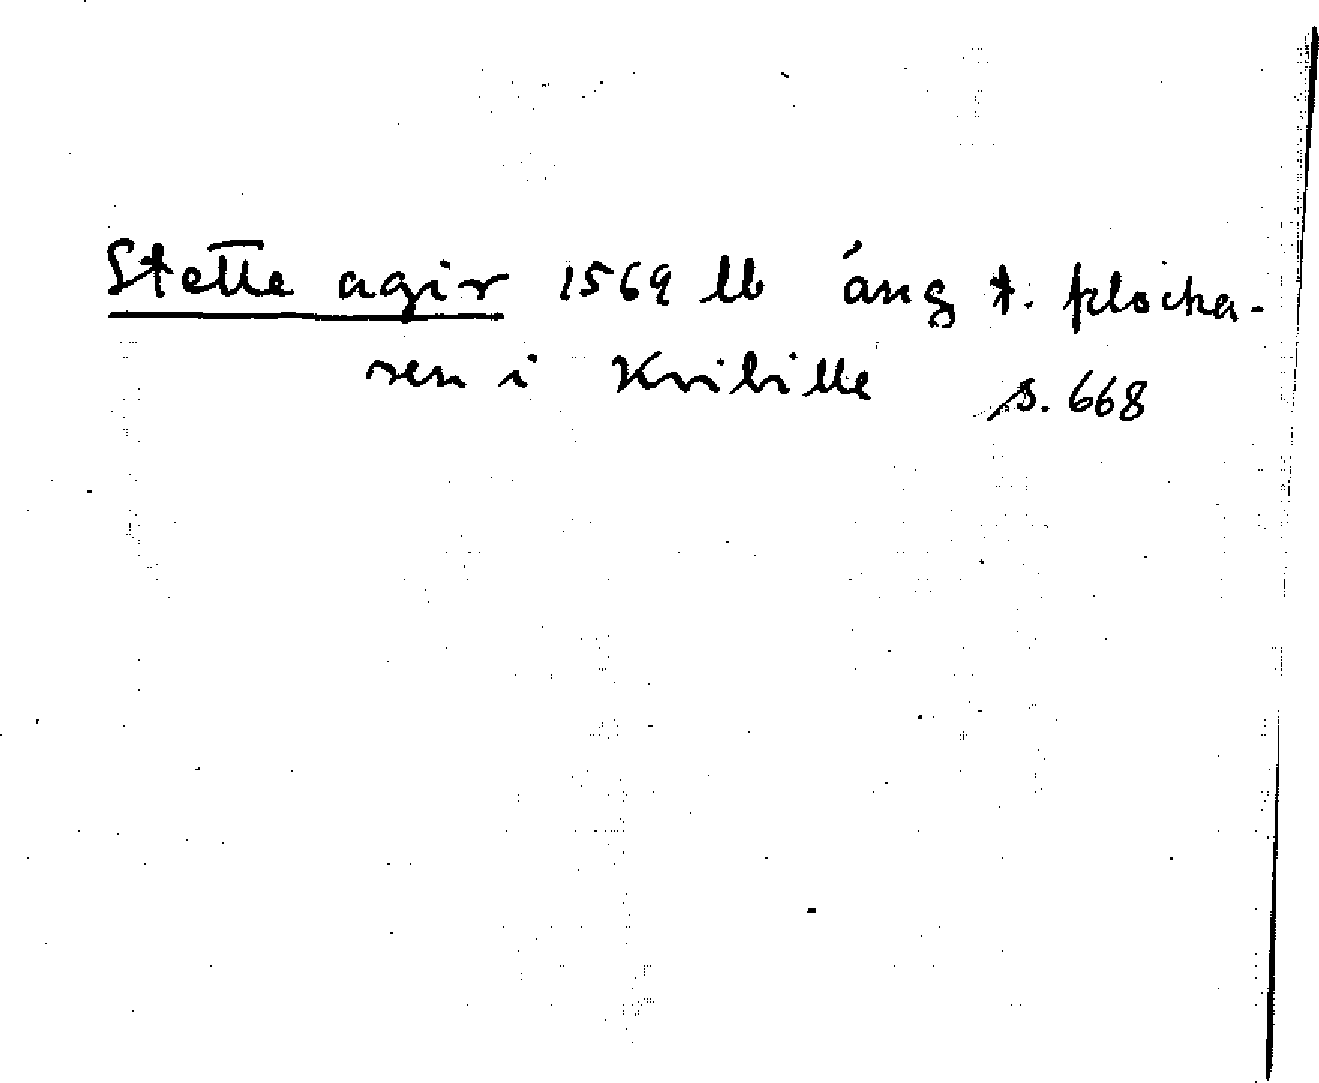 Stette agir 1569 lb äng t. klocka-
ren i Kvibille s. 668